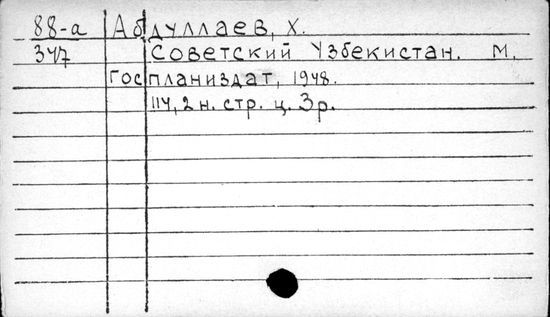 88-а Абдуллаев, Х.
347 Советский Узбекистан. М.
Госпланиздат, 1948.
114, 2 н. стр. ц. 3р.